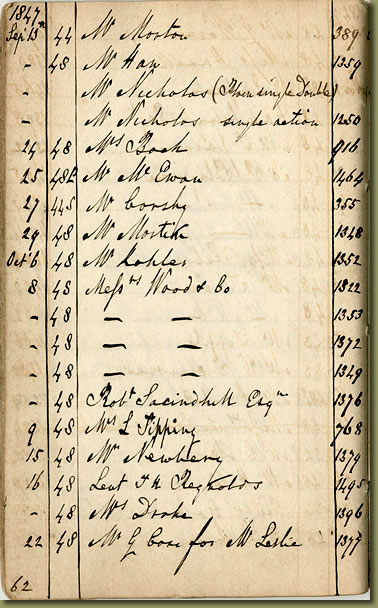 1847
Sep 13 44 Mr Morton 389
- 48 Mr Haw 1259
- Mr Nicholas (Rosen single Double)
- Mr Nicholas single action 1250
24 48 Mrs Bock 916
25 48 Mr McEwan 1464
27 44S Mr Corsby 355
29 48 Mr Mortik 1348
Oct 6 48 Mr Kohler 1352
8 48 Messrs Wood & Co 1822
- 48 — — 1353
- 48 — — 1372
- 48 — — 1349
- 48 Robt Esqre 1376
9 48 Mrs L Tipping 768
15 48 Mr Newbery 1379
16 48 Leut Reynolds 1495
- 48 Mrs Drake 1396
22 48 Mr G Case for Mr Leslie 1377
62